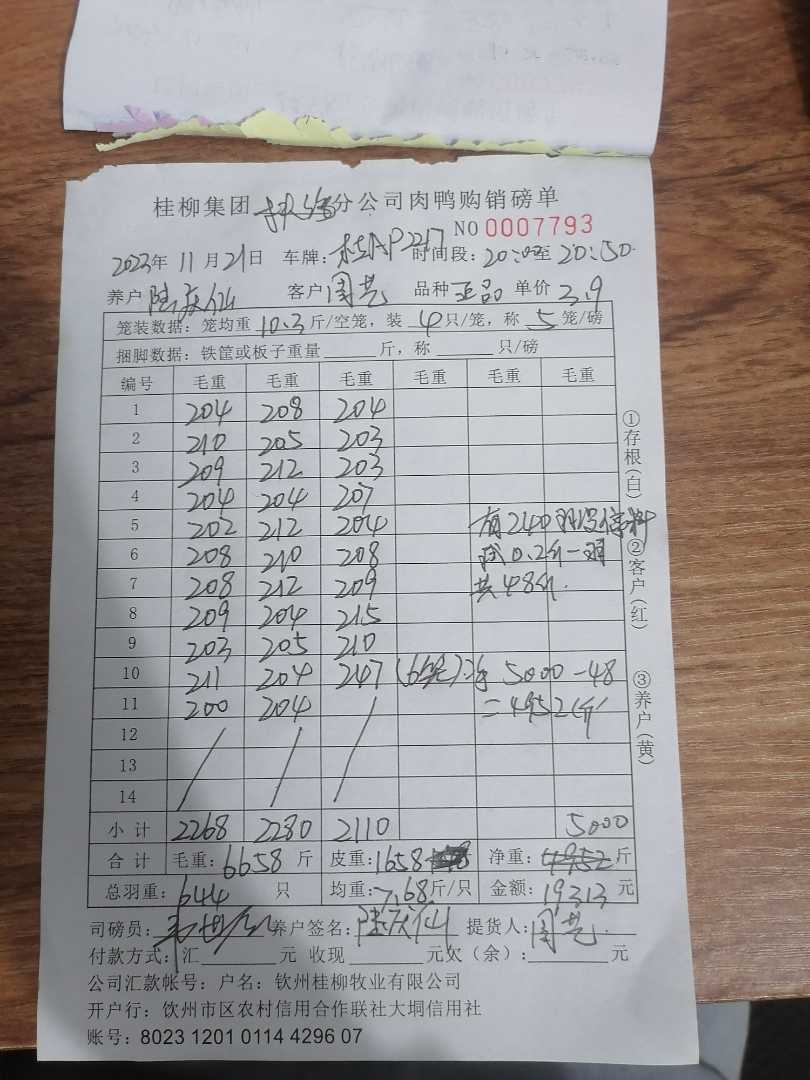 桂柳集团 分公司肉鸭购销磅单
NO 0007793
2023年 11月21日 车牌: 桂AP2217 时间段: 20:02至 20:50
养户 陆庆仙 客户 周艺 品种 正品 单价 3.9
笼装数据: 笼均重 10.3 斤/空笼, 装 4 只/笼, 称 5 笼/磅
捆脚数据: 铁筐或板子重量 斤, 称 只/磅
编号 毛重 毛重 毛重 毛重 毛重 毛重
1 204 208 204
2 210 205 203
3 209 212 203
4 204 204 207
5 202 212 204 有240羽没停料
6 208 210 208 扣0.2斤一羽
7 208 212 209 共48斤.
8 209 204 215
9 203 205 210
10 211 204 247 (6笼) 净 5000-48
11 200 204 / =4952斤
12 / /
13
14
小计 2268 2280 2110 5000
合计 毛重: 6658 斤 皮重: 1658 净重: 4952 斤
总羽重: 644 只 均重: 7.68 斤/只 金额: 19313 元
司磅员: 养户签名: 陆庆仙 提货人: 周艺
付款方式: 汇 元 收现 元欠(余): 元
公司汇款帐号: 户名: 钦州桂柳牧业有限公司
开户行: 饮州市区农村信用合作联社大垌信用社
账号: 8023 1201 0114 4296 07
①存根(白)
②客户(红)
③养户(黄)